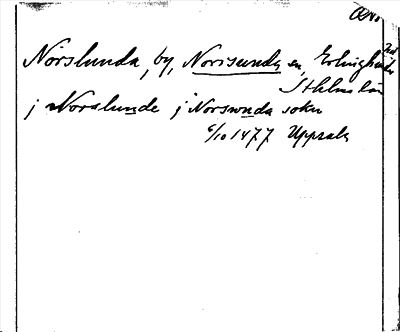 Norslunda, by, Norrsunda sn, Erlinghundra
Sthlms län
j Noralunde j Norswnda sokn
6/10 1477 Uppsala